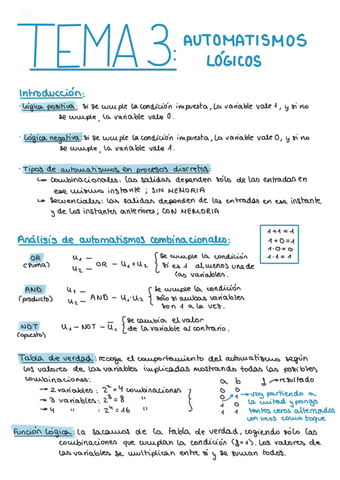 TEMA 3: AUTOMATISMOS
LÓGICOS
Introducción:
· Lógica positiva: si se cumple la condición impuesta, la variable vale 1, y si no
se cumple, la variable vale 0.
· Lógica negativa: si se cumple la condición impuesta, la variable vale 0, y si no
se cumple, la variable vale 1.
· Tipos de automatismos en procesos discretos:
↳ Combinacionales: las salidas dependen sólo de las entradas en
ese mismo instante ; SIN MEMORIA
↳ Secuenciales: las salidas dependen de las entradas en ese instante
y de los instantes anteriores; CON MEMORIA
Análisis de automatismos combinacionales:
1+1=1
1+0=1
1·0=0
1·1=1
OR
(suma)
u₁ —
u₂ — OR – u₁+u₂
{ Se cumple la condición
si es 1 al menos una de
las variables.
AND
(producto)
u₁ —
u₂ — AND – u₁·u₂
{ Se cumple la condición
sólo si ambas variables
son 1 a la vez.
NOT
(opuesto)
u₁ – NOT –
{ Se cambia el valor
de la variable al contrario.
Tabla de verdad: recoge el comportamiento del automatismo según
los valores de las variables implicadas mostrando todas las posibles
combinaciones:
→ 2 variables: 2² = 4 combinaciones
→ 3 variables: 2³ = 8 "
→ 4 " : 2⁴ = 16 "
a b f → resultado
0 0
0 1
1 0
1 1
→ voy partiendo a
la mitad y pongo
tantos ceros alternados
con unos como toque
Función lógica: la sacamos de la tabla de verdad, cogiendo sólo las
combinaciones que cumplan la condición (f=1). Los valores de
las variables se multiplican entre sí y se suman todos.